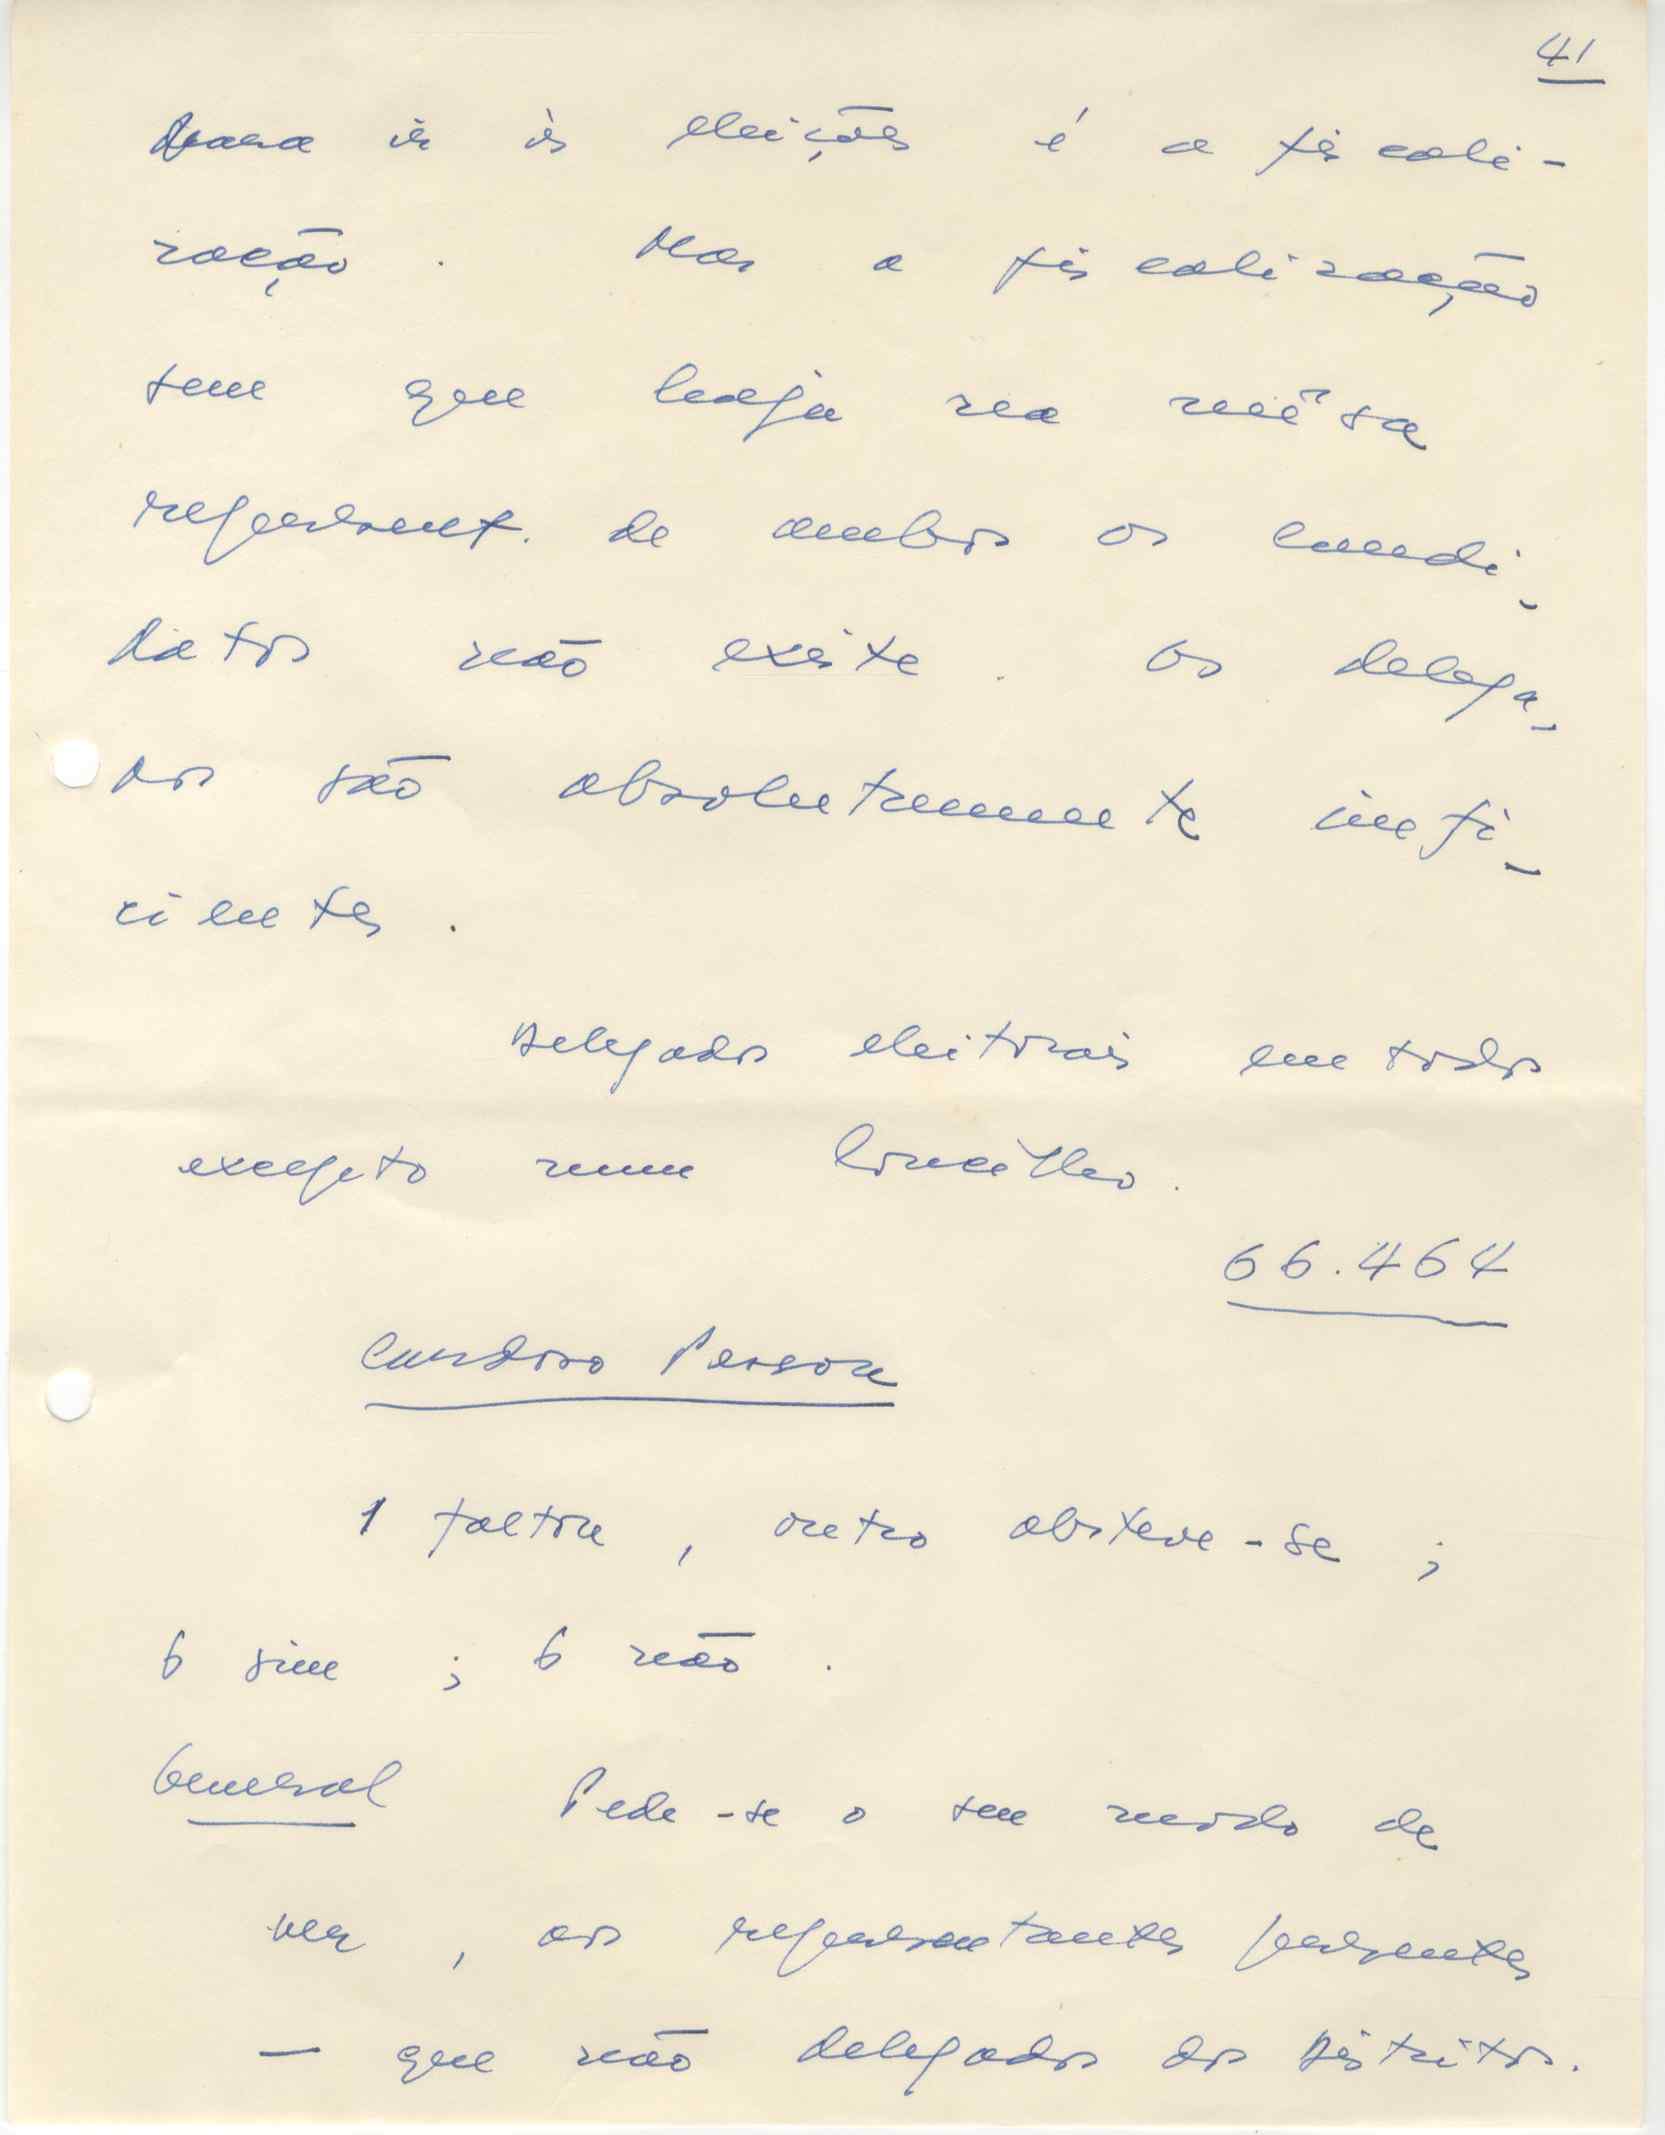 41
para ir às eleições é a fiscali-
zação. Mas a fiscalização
sem que haja na mêsa
represent. de ambos os candi-
datos não existe. Os delega-
dos são absolutamente inefi-
cientes.
Delegados eleitorais em todos
excepto num Concelho.
66.464
Cardoso Pessoa
1 faltou, outro absteve-se;
6 sim; 6 não.
General Pede-se o seu modo de
ver, aos representantes presentes
— que não delegados dos Distritos.